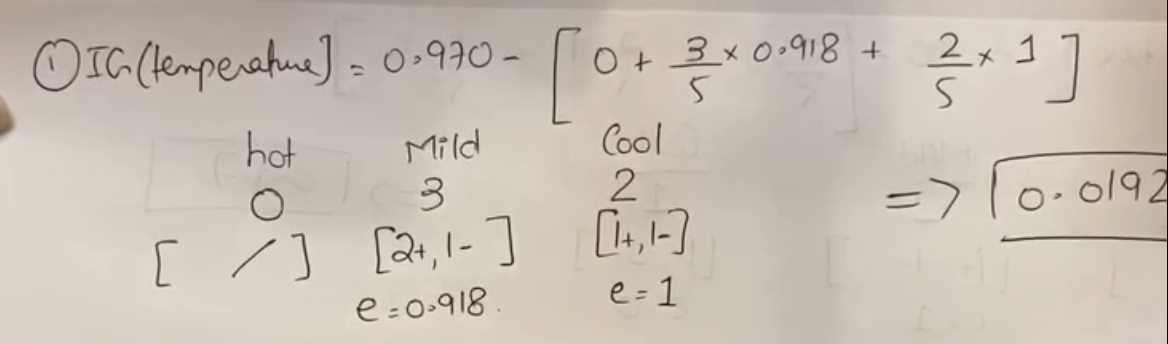 ① IG(temperature] = 0.970 - [ 0 + 3/5 × 0.918 + 2/5 × 1 ]
hot Mild Cool
0 3 2
[ / ] [2+, 1- ] [1+, 1-]
e = 0.918. e = 1
=> 0.0192